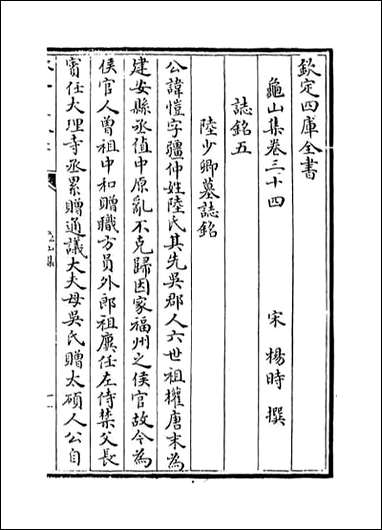 欽定四庫全書
龜山集卷三十四
宋 楊時 撰
誌銘五
陸少卿墓誌銘
公諱愷字疆仲姓陸氏其先吳郡人六世祖權唐末為
建安縣丞值中原亂不克歸因家福州之侯官故今為
侯官人曾祖中和贈職方員外郎祖廣任左侍禁父長
賓任大理寺丞累贈通議大夫母吳氏贈太碩人公自